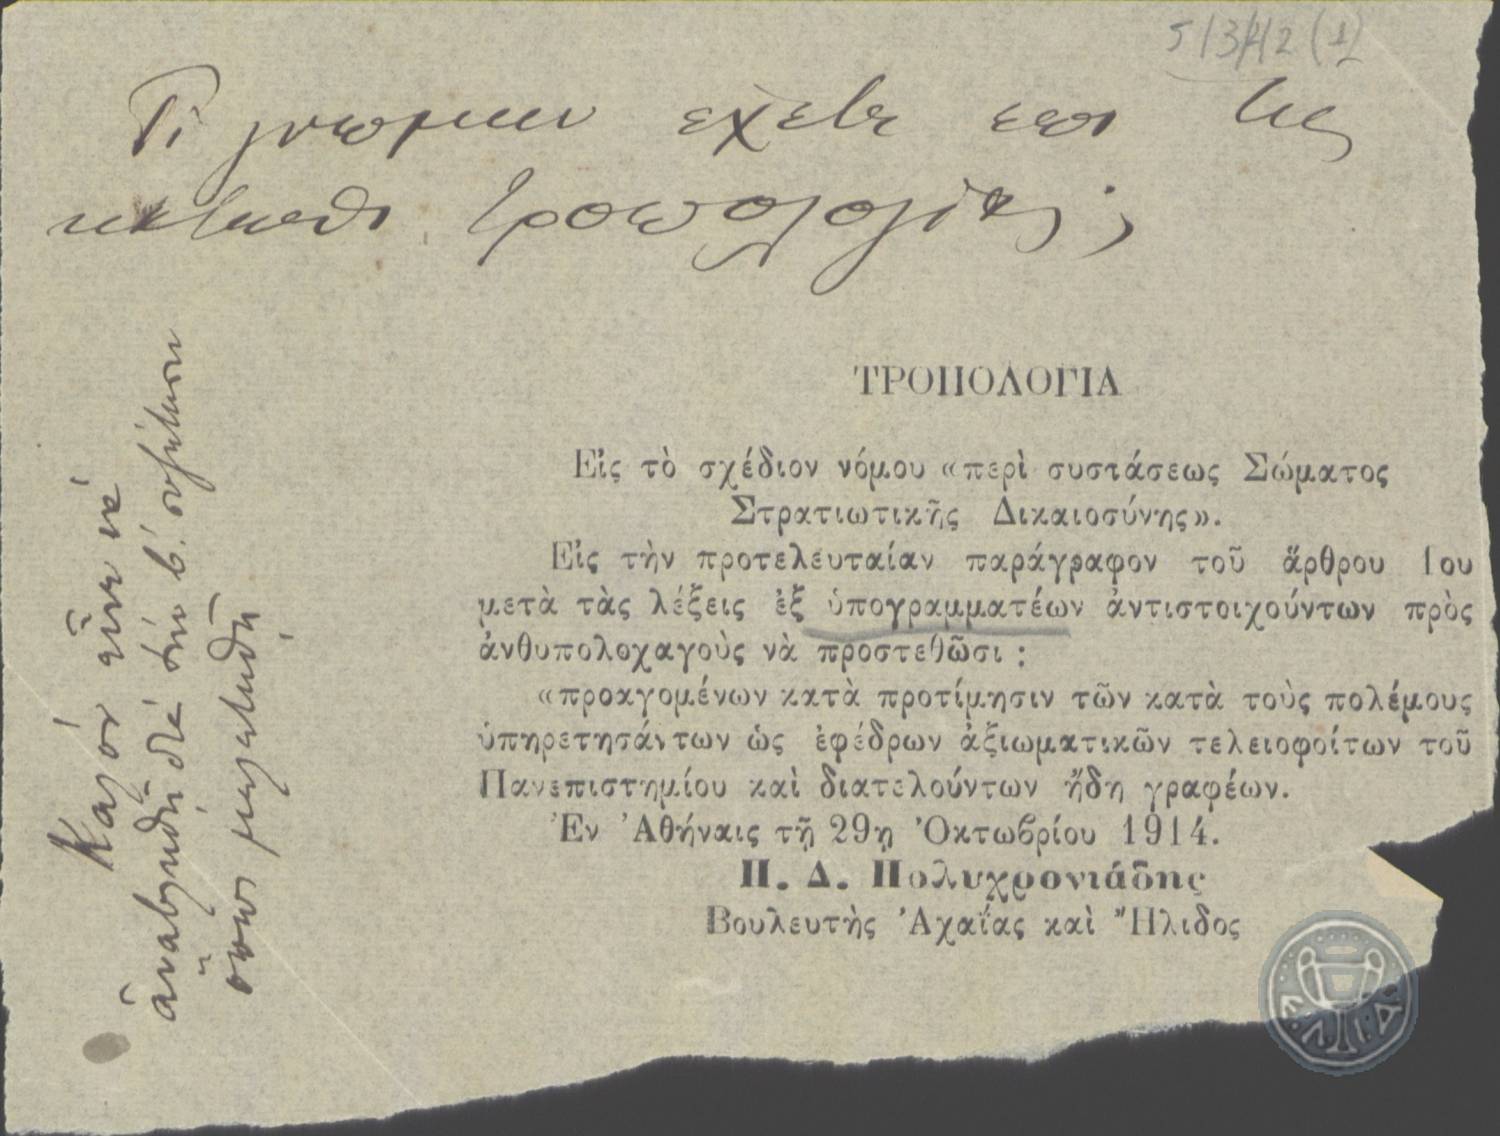 5/3/42 (1)
Τι γνωμην εχετε επι της
κατωθι τροπολογίας;
ΤΡΟΠΟΛΟΓΙΑ
Εἰς τὸ σχέδιον νόμου «περὶ συστάσεως Σώματος
Στρατιωτικῆς Δικαιοσύνης».
Εἰς τὴν προτελευταίαν παράγραφον τοῦ ἄρθρου 1ου
μετὰ τὰς λέξεις ἐξ ὑπογραμματέων ἀντιστοιχούντων πρὸς
ἀνθυπολοχαγοὺς νὰ προστεθῶσι :
«προαγομένων κατὰ προτίμησιν τῶν κατὰ τοὺς πολέμους
ὑπηρετησάντων ὡς ἐφέδρων ἀξιωματικῶν τελειοφοίτων τοῦ
Πανεπιστημίου καὶ διατελούντων ἤδη γραφέων.
Ἐν Ἀθήναις τῇ 29ῃ Ὀκτωβρίου 1914.
Π. Δ. Πολυχρονιάδης
Βουλευτὴς Ἀχαΐας καὶ Ἤλιδος
Καλόν εἶνε νά
ἀναβληθῇ διά τήν β΄. συζήτησιν
ὅπως μελετηθῇ
Ε.Λ.Ι.Α